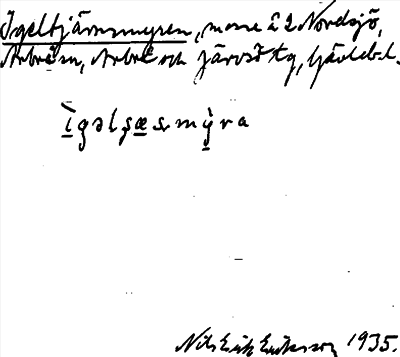 Igeltjärnsmyren, mosse å 2 Nordsjö,
Arbrå sn, Arbrå och Järvsö tg, Gävlebs l.
ìgəlʂæsmỳra
Nils Erik Eriksson 1935.